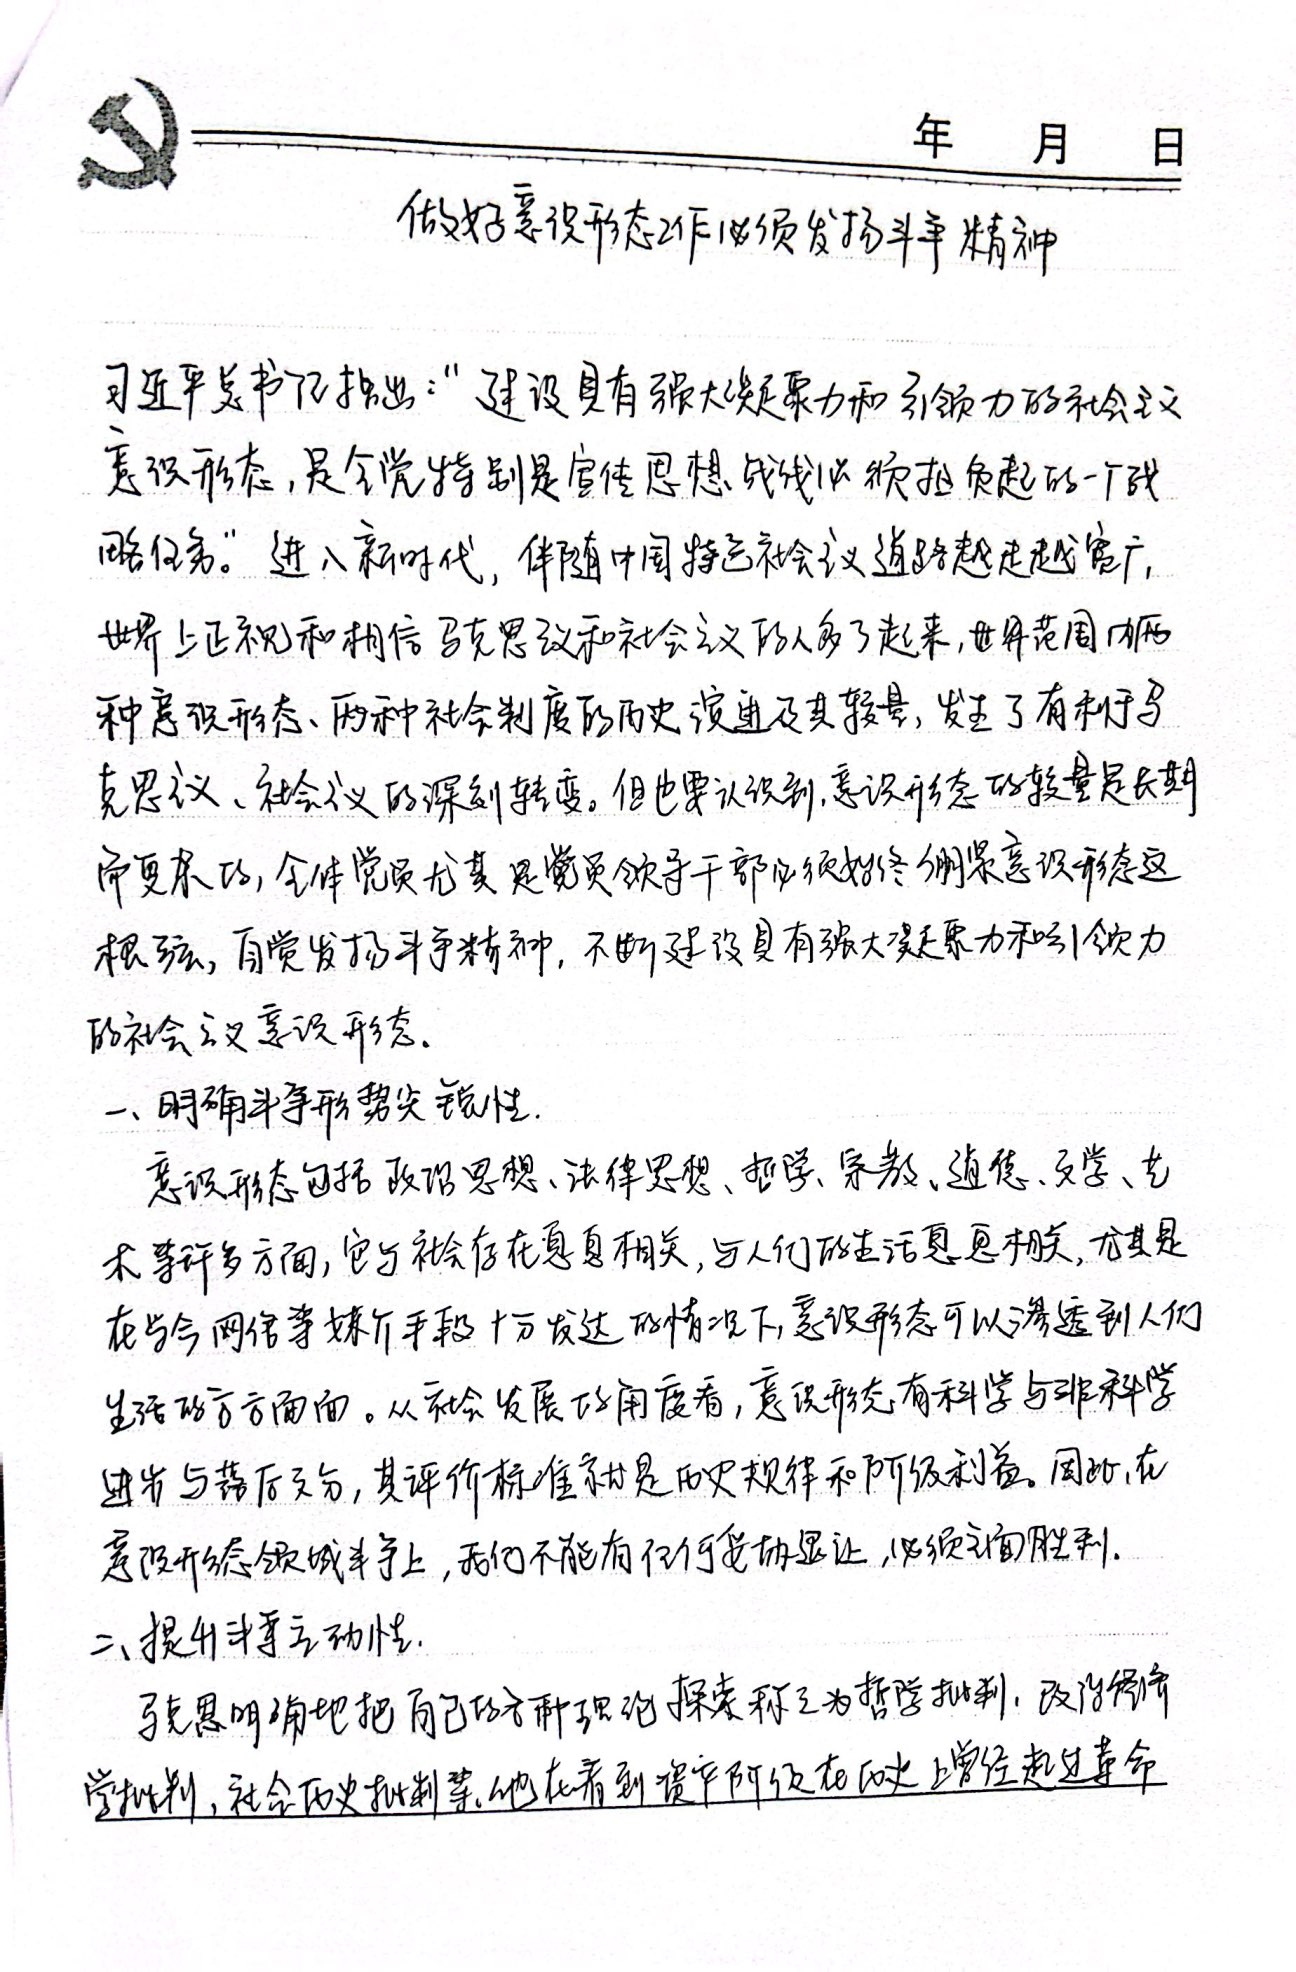 年 月 日
做好意识形态工作必须发扬斗争精神
习近平总书记指出:“建设具有强大凝聚力和引领力的社会主义
意识形态,是全党特别是宣传思想战线必须担负起的一个战
略任务。”进入新时代,伴随中国特色社会主义道路越走越宽广,
世界上正视和相信马克思主义和社会主义的人多了起来,世界范围内两
种意识形态、两种社会制度的历史演进及其较量,发生了有利于马
克思主义、社会主义的深刻转变。但也要认识到,意识形态的较量是长期
而复杂的,全体党员尤其是党员领导干部必须始终绷紧意识形态这
根弦,自觉发扬斗争精神,不断建设具有强大凝聚力和引领力
的社会主义意识形态。
一、明确斗争形势尖锐性.
意识形态包括政治思想、法律思想、哲学、宗教、道德、文学、艺
术等许多方面,它与社会存在息息相关,与人们的生活息息相关,尤其是
在当今网络等媒介手段十分发达的情况下,意识形态可以渗透到人们
生活的方方面面。从社会发展的角度看,意识形态有科学与非科学
进步与落后之分,其评价标准就是历史规律和阶级利益。因此,在
意识形态领域斗争上,我们不能有任何妥协退让,必须全面胜利.
二、提升斗争主动性.
马克思明确地把自己的各种理论探索称之为哲学批判,政治经济
学批判,社会历史批判等。他在看到资产阶级在历史上曾经起过革命